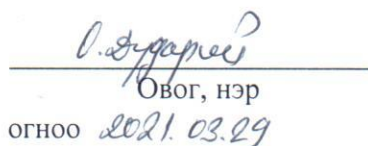 Овог, нэр
огноо 2021. 03.29